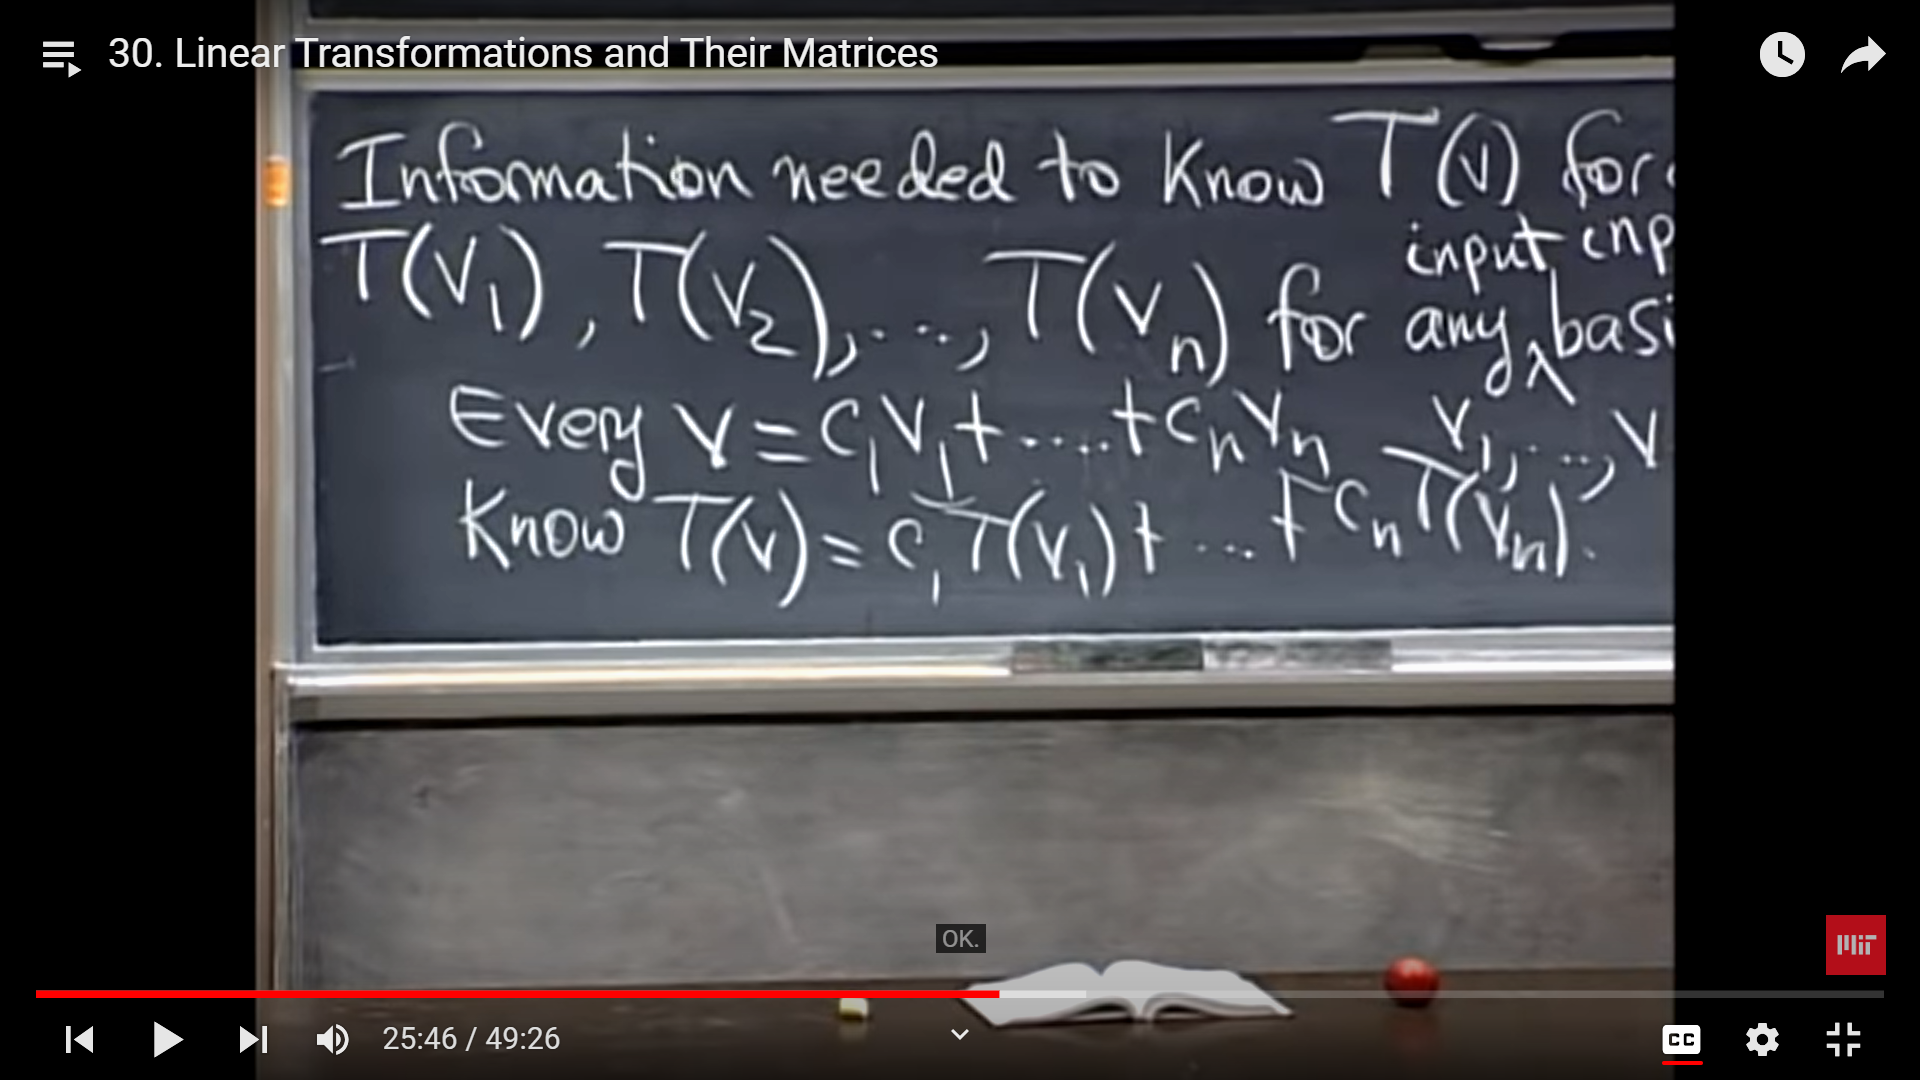 30. Linear Transformations and Their Matrices
Information needed to know T(v) for
input inp
T(v₁), T(v₂), ..., T(vₙ) for any basi
Every v = c₁v₁ + .... + cₙvₙ v₁, ..., v
Know T(v) = c₁T(v₁) + ... + cₙT(vₙ).
OK.
MIT
25:46 / 49:26
CC